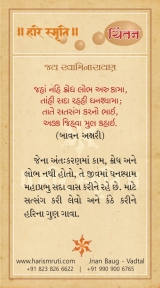 ॥ હરિ સ્મૃતિ ॥
ચિંતન
જય સ્વામિનારાયણ
જહાં નહિ ક્રોધ લોભ અરુ કામા,
તાંહી સદા રહહી ઘનશ્યામા;
તાતે સતસંગ કરનો ભાઈ,
અડક જિહ્વા મુલ કહાઈ.
(બાવન અક્ષરી)
જેના અંતઃકરણમાં કામ, ક્રોધ અને
લોભ નથી હોતો, તે જીવમાં ઘનશ્યામ
મહાપ્રભુ સદા વાસ કરીને રહે છે. માટે
સત્સંગ કરી લેવો અને કંઠે કરીને
હરિના ગુણ ગાવા.
www.harismruti.com
Jnan Baug - Vadtal
+91 823 826 6622
+91 990 900 6765